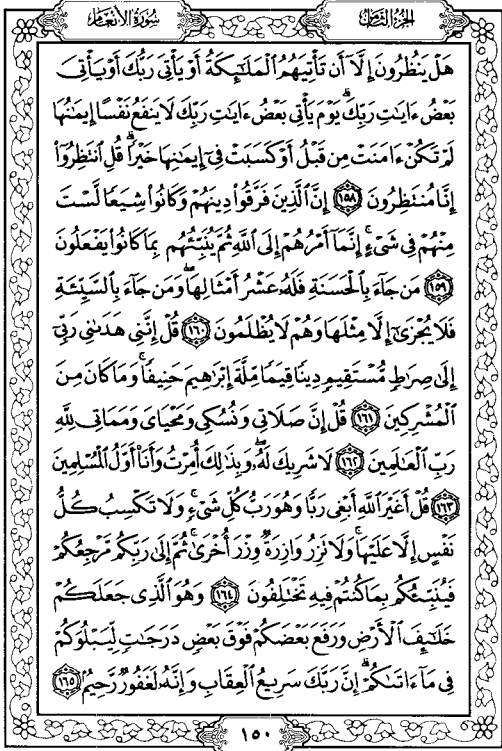 الجزء الثامن
سورة الأنعام
هَلْ يَنظُرُونَ إِلَّآ أَن تَأْتِيَهُمُ ٱلْمَلَٰٓئِكَةُ أَوْ يَأْتِىَ رَبُّكَ أَوْ يَأْتِىَ
بَعْضُ ءَايَٰتِ رَبِّكَ ۗ يَوْمَ يَأْتِى بَعْضُ ءَايَٰتِ رَبِّكَ لَا يَنفَعُ نَفْسًا إِيمَٰنُهَا
لَمْ تَكُنْ ءَامَنَتْ مِن قَبْلُ أَوْ كَسَبَتْ فِىٓ إِيمَٰنِهَا خَيْرًا ۗ قُلِ ٱنتَظِرُوٓا۟
إِنَّا مُنتَظِرُونَ ١٥٨ إِنَّ ٱلَّذِينَ فَرَّقُوا۟ دِينَهُمْ وَكَانُوا۟ شِيَعًا لَّسْتَ
مِنْهُمْ فِى شَىْءٍ ۚ إِنَّمَآ أَمْرُهُمْ إِلَى ٱللَّهِ ثُمَّ يُنَبِّئُهُم بِمَا كَانُوا۟ يَفْعَلُونَ
١٥٩ مَن جَآءَ بِٱلْحَسَنَةِ فَلَهُۥ عَشْرُ أَمْثَالِهَا ۖ وَمَن جَآءَ بِٱلسَّيِّئَةِ
فَلَا يُجْزَىٰٓ إِلَّا مِثْلَهَا وَهُمْ لَا يُظْلَمُونَ ١٦٠ قُلْ إِنَّنِى هَدَىٰنِى رَبِّىٓ
إِلَىٰ صِرَٰطٍ مُّسْتَقِيمٍ دِينًا قِيَمًا مِّلَّةَ إِبْرَٰهِيمَ حَنِيفًا ۚ وَمَا كَانَ مِنَ
ٱلْمُشْرِكِينَ ١٦١ قُلْ إِنَّ صَلَاتِى وَنُسُكِى وَمَحْيَاىَ وَمَمَاتِى لِلَّهِ
رَبِّ ٱلْعَٰلَمِينَ ١٦٢ لَا شَرِيكَ لَهُۥ ۖ وَبِذَٰلِكَ أُمِرْتُ وَأَنَا۠ أَوَّلُ ٱلْمُسْلِمِينَ
١٦٣ قُلْ أَغَيْرَ ٱللَّهِ أَبْغِى رَبًّا وَهُوَ رَبُّ كُلِّ شَىْءٍ ۚ وَلَا تَكْسِبُ كُلُّ
نَفْسٍ إِلَّا عَلَيْهَا ۚ وَلَا تَزِرُ وَازِرَةٌ وِزْرَ أُخْرَىٰ ۚ ثُمَّ إِلَىٰ رَبِّكُم مَّرْجِعُكُمْ
فَيُنَبِّئُكُم بِمَا كُنتُمْ فِيهِ تَخْتَلِفُونَ ١٦٤ وَهُوَ ٱلَّذِى جَعَلَكُمْ
خَلَٰٓئِفَ ٱلْأَرْضِ وَرَفَعَ بَعْضَكُمْ فَوْقَ بَعْضٍ دَرَجَٰتٍ لِّيَبْلُوَكُمْ
فِى مَآ ءَاتَىٰكُمْ ۗ إِنَّ رَبَّكَ سَرِيعُ ٱلْعِقَابِ وَإِنَّهُۥ لَغَفُورٌ رَّحِيمٌ ١٦٥
١٥٠